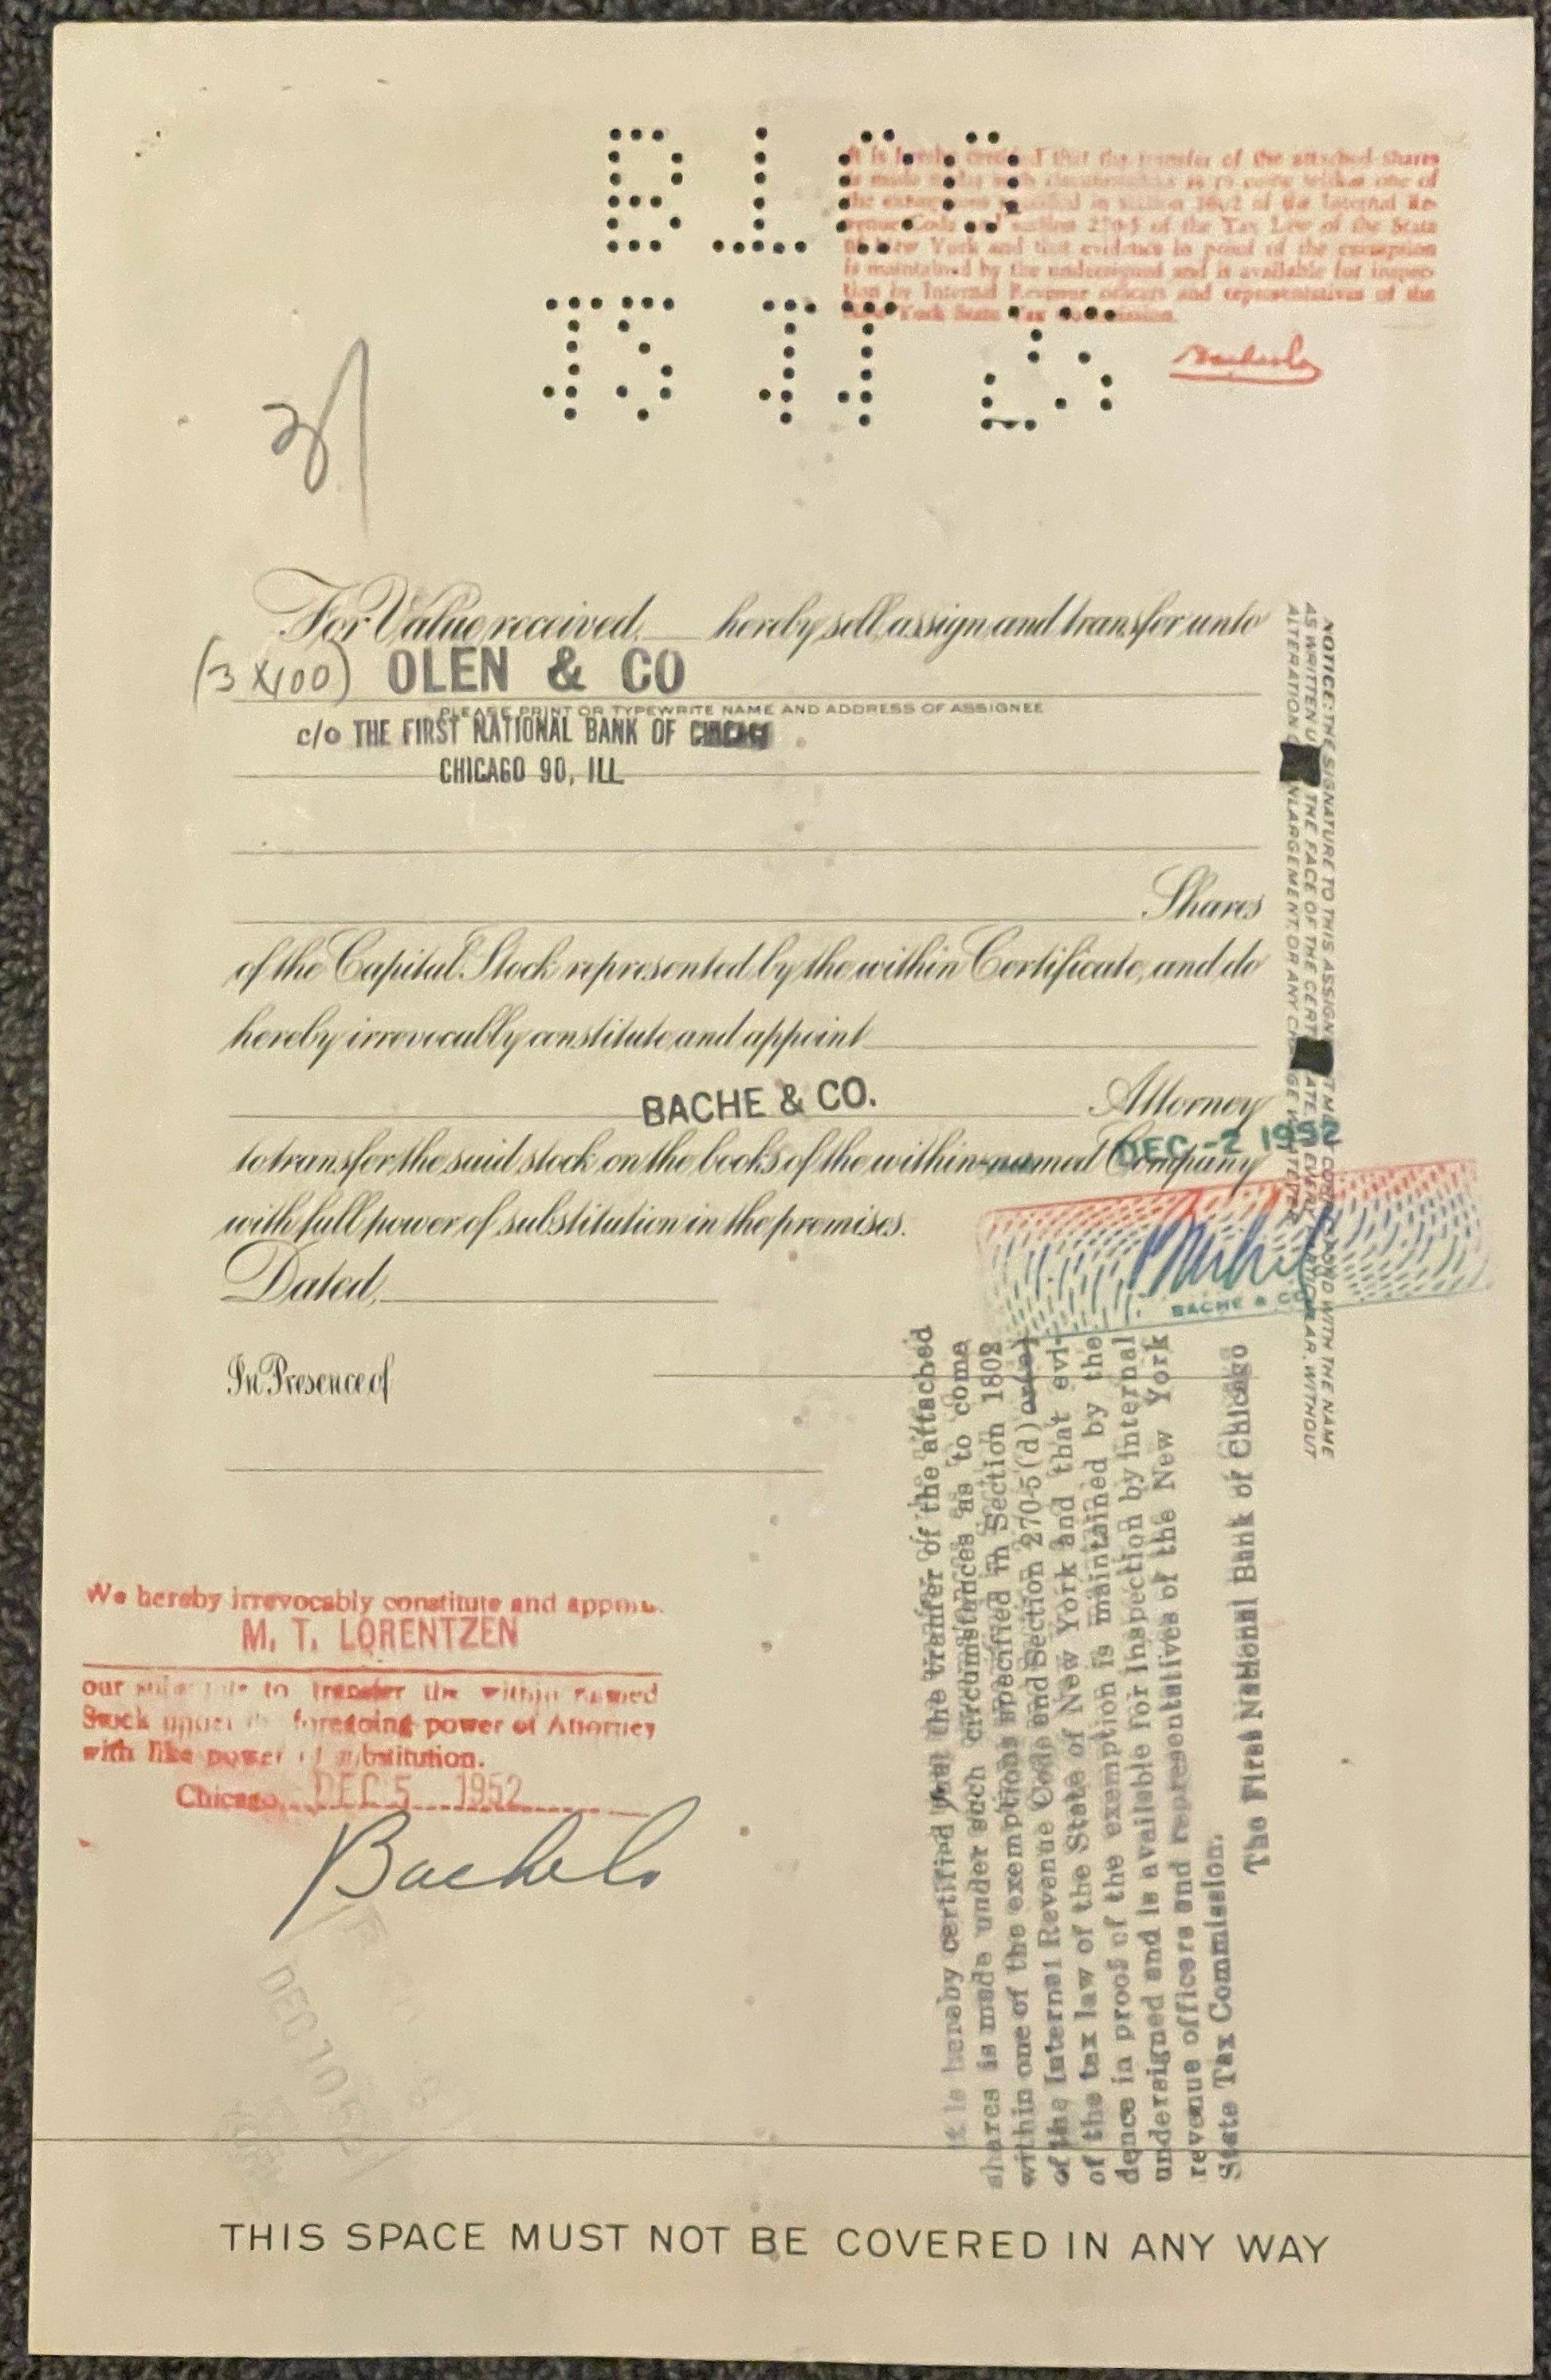 It is hereby certified that the transfer of the attached shares
is made under such circumstances as to come within one of
the exemptions specified in section 1802 of the Internal Re-
venue Code and section 270-5 of the Tax Law of the State
of New York and that evidence in proof of the exemption
is maintained by the undersigned and is available for inspec-
tion by Internal Revenue officers and representatives of the
New York State Tax Commission.
For Value received, hereby sell, assign, and transfer unto
(3 X100) OLEN & CO
PLEASE PRINT OR TYPEWRITE NAME AND ADDRESS OF ASSIGNEE
c/o THE FIRST NATIONAL BANK OF CHICAGO
CHICAGO 90, ILL
Shares
of the Capital Stock represented by the within Certificate, and do
hereby irrevocably constitute and appoint
BACHE & CO. Attorney
DEC -2 1952
to transfer the said stock on the books of the within-named Company
with full power of substitution in the premises.
BACHE & CO
Dated,
In Presence of
NOTICE: THE SIGNATURE TO THIS ASSIGN TMENT CORRESPOND WITH THE NAME
AS WRITTEN U THE FACE OF THE CERT ATE, EVERY PARTICULAR, WITHOUT
ALTERATION NLARGEMENT, OR ANY CH GE WHATEVER
It is hereby certified that the tranfer of the attached
shares is made under such circumstances as to come
within one of the exemptions specified in Section 1802
of the Internal Revenue Code and Section 270-5 (d) or (e)
of the tax law of the State of New York and that evi-
dence in proof of the exemption is maintained by the
undersigned and is available for inspection by internal
revenue officers and representatives of the New York
State Tax Commission.
The First National Bank of Chicago
We hereby irrevocably constitute and appoint
M. T. LORENTZEN
our substitute to transfer the within named
Stock under the foregoing power of Attorney
with like power of substitution.
Chicago, DEC 5 1952
Bache & Co
DEC 10 52
THIS SPACE MUST NOT BE COVERED IN ANY WAY